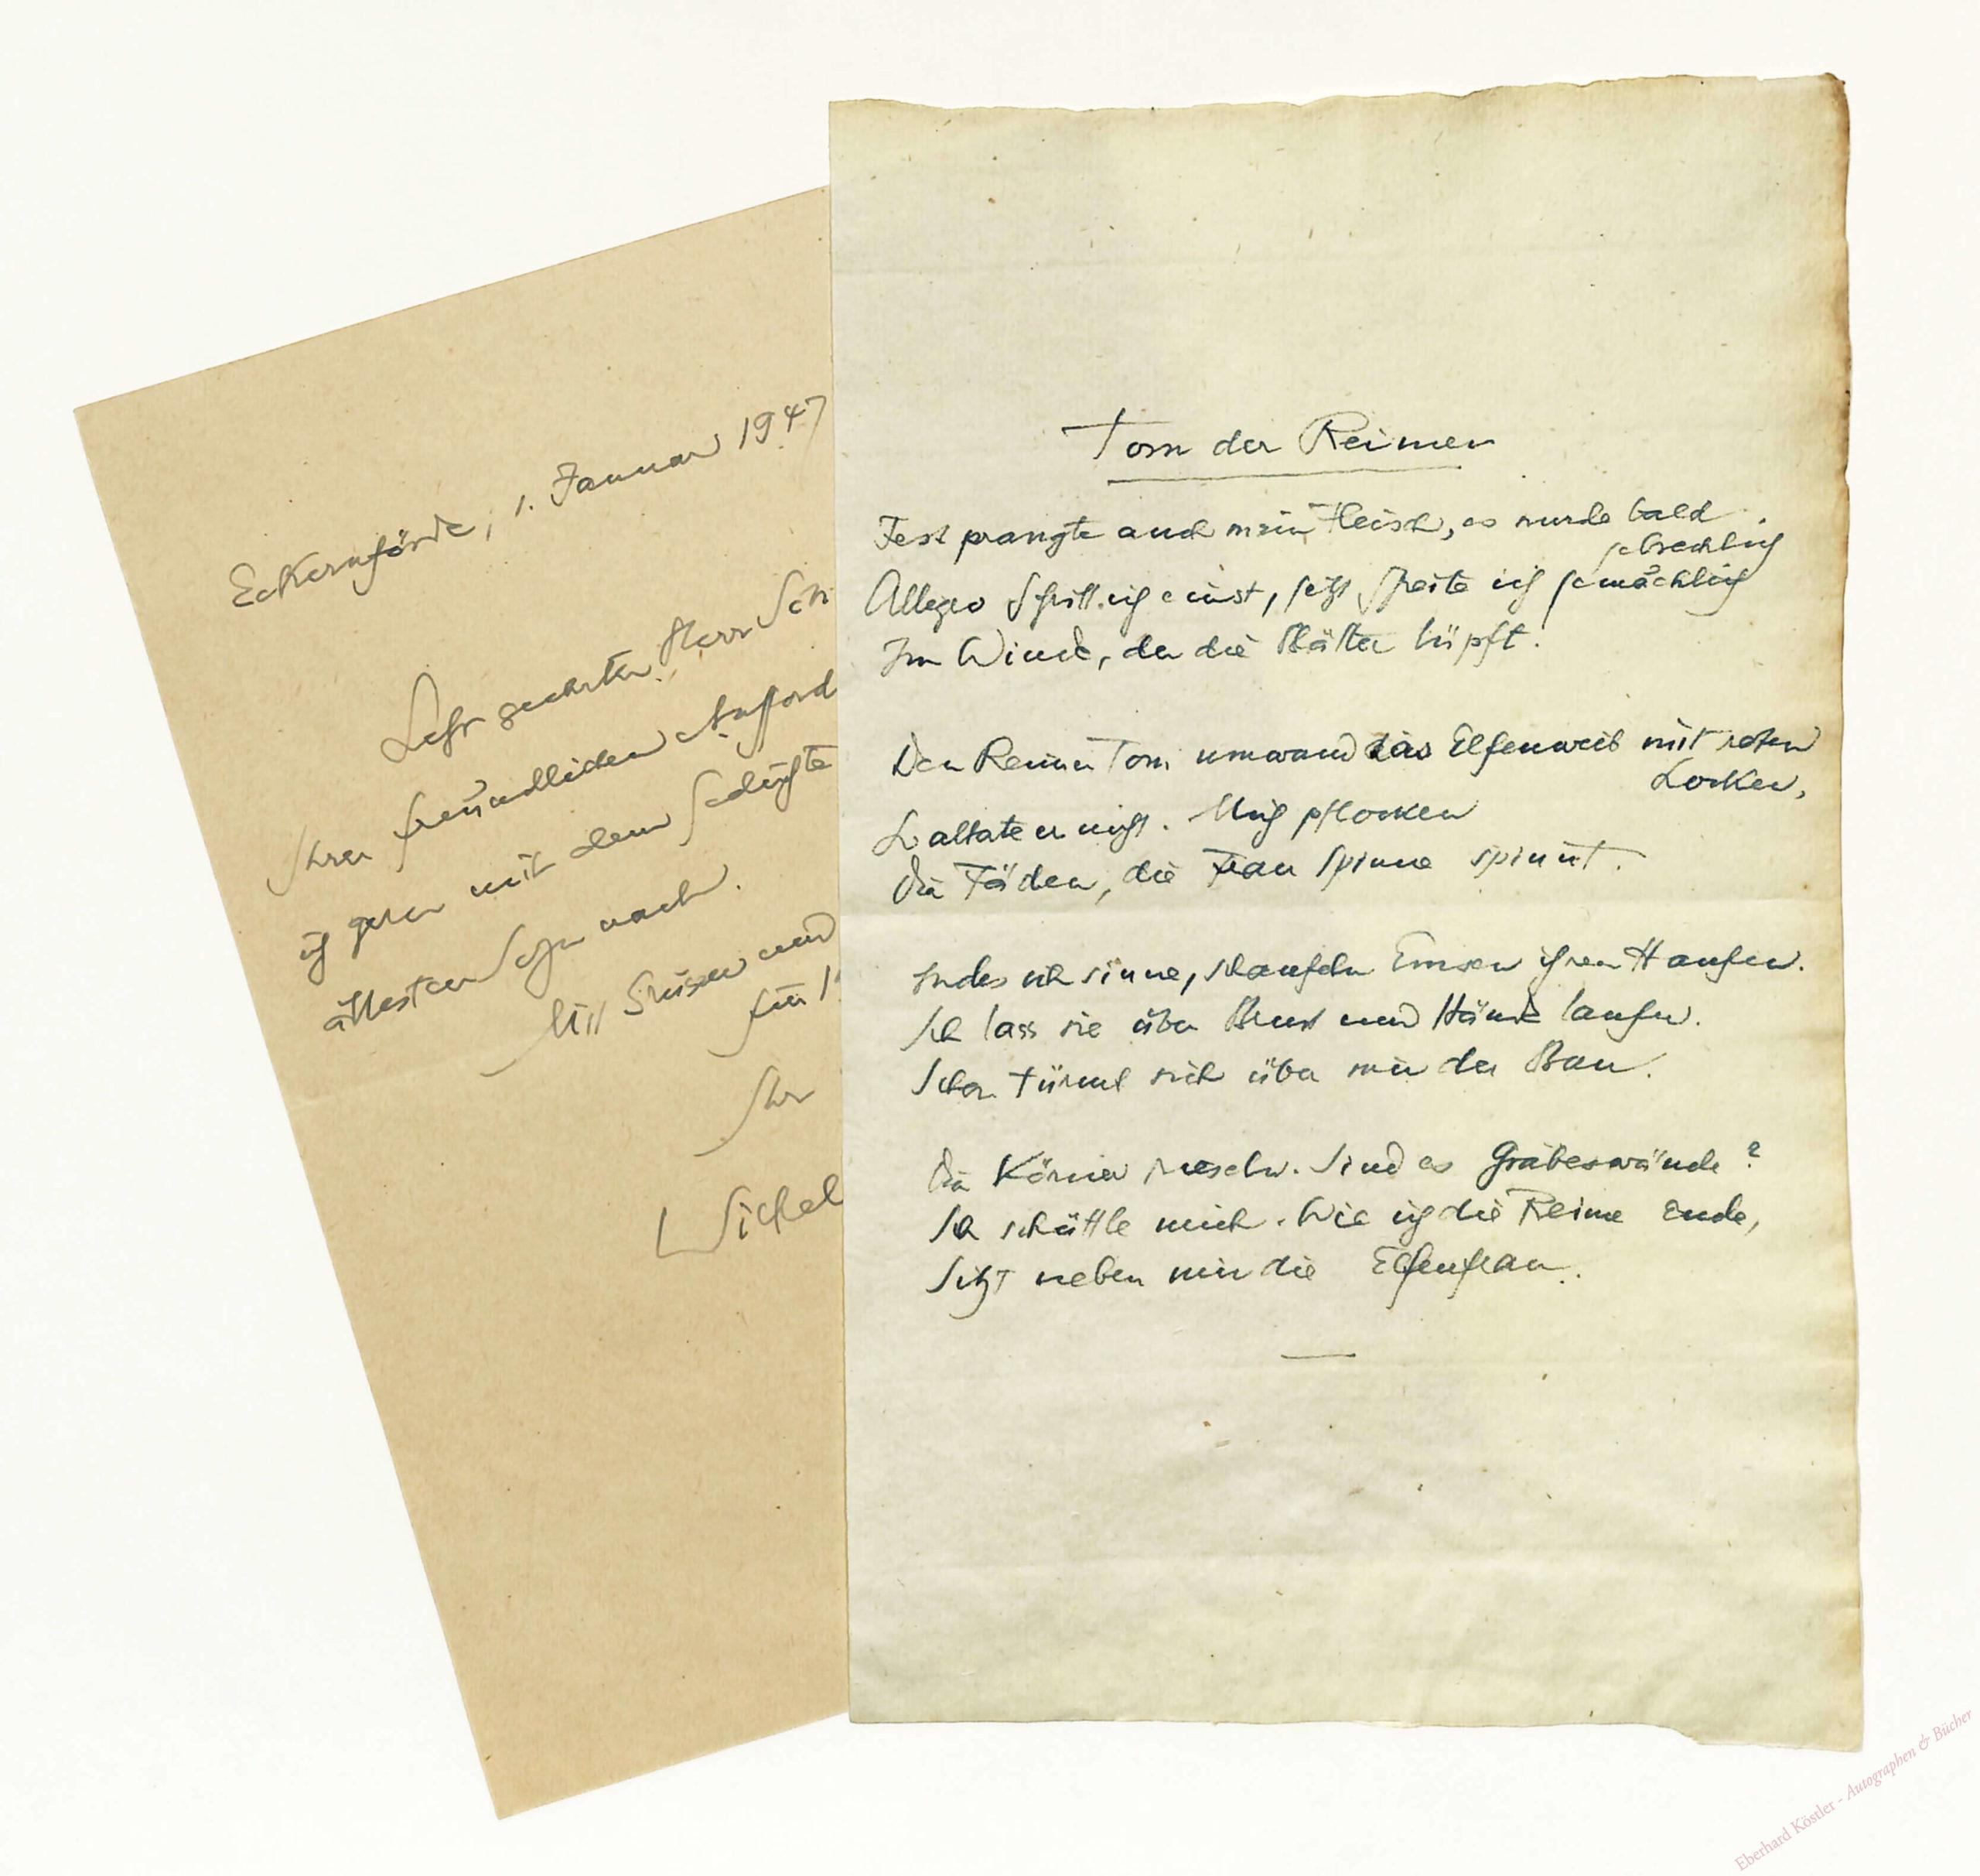 Eckernförde, 1. Januar 1947
Sehr geehrter Herr Sch
Ihrer freundlichen Aufford
ich gern mit dem Gedichte
ältesten Sohn nach.
Mit Grüssen und
für I
Ihr
Wilhel
Tom der Reimer
Fest prangte auch mein Fleisch, es wurde bald
gebrechlich
Allegro schritt ich einst, jetzt schreite ich gemächlich
Im Wind, der die Blätter lüpft.
Den Reimer Tom umwand das Elfenweib mit roten
Locken,
Da alterte er nicht. Mich pflocken
Die Fäden, die Frau Spinne spinnt.
Indes ich sinne, schaufeln Emsen ihren Haufen.
Ich lass sie über Brust und Hände laufen.
Schon türmt sich über mir der Bau.
Die Körner rieseln. Sind es Grabeswände?
Ich schüttle mich. Wie ich die Reime ende,
Sitzt neben mir die Elfenfrau.
Eberhard Köstler - Autographen & Bücher